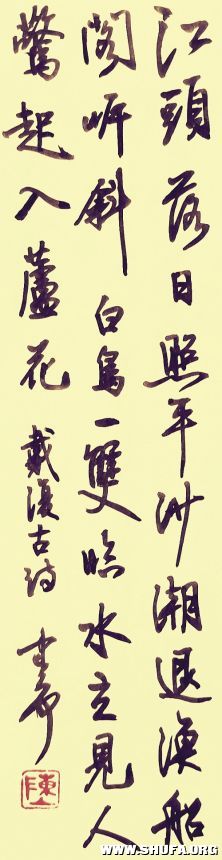 江頭落日照平沙潮退漁船
閣岸斜白鳥一雙臨水立見人
驚起入蘆花 戴復古詩
陳
WWW.SHUFA.ORG